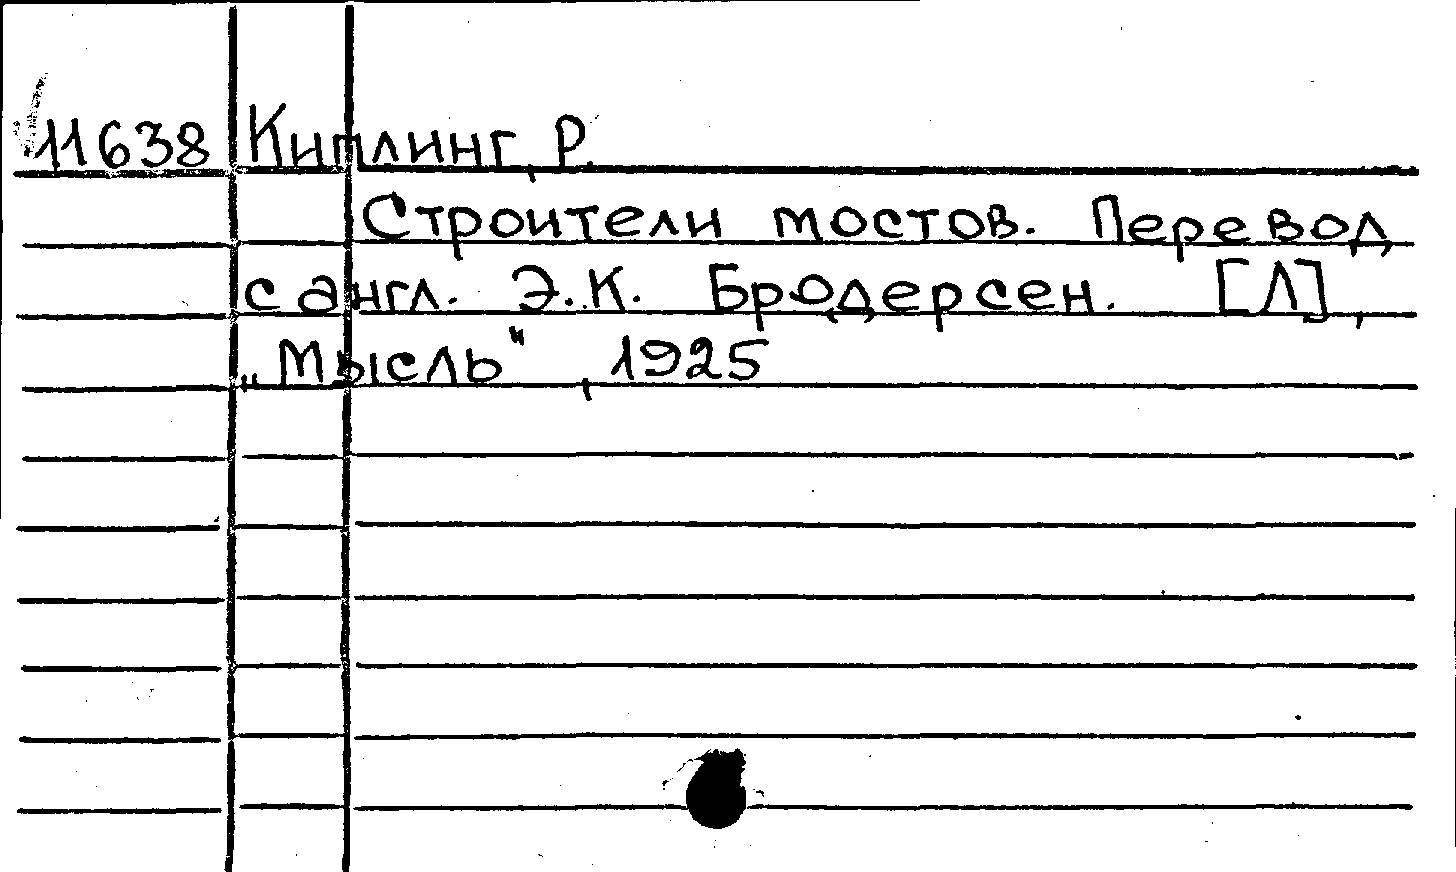 11638 Киплинг, Р.
Строители мостов. Перевод
с англ. Э.К. Бродерсен. [Л],
„Мысль“, 1925